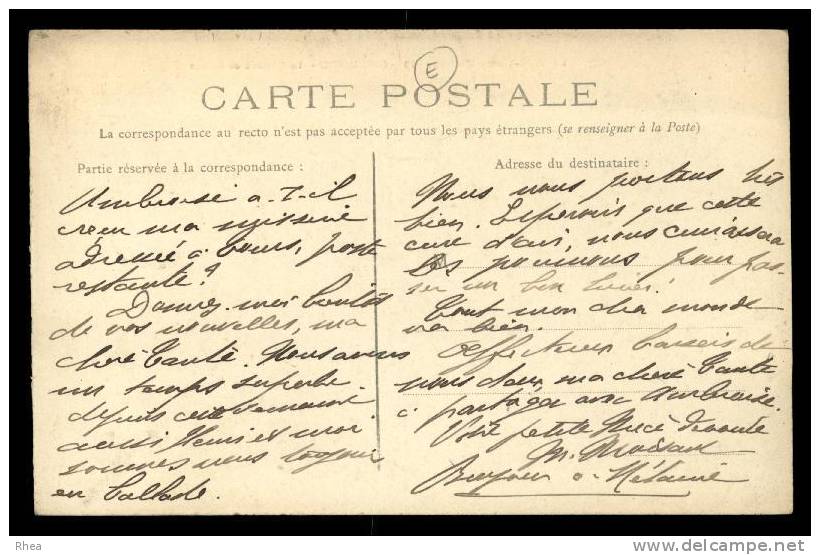 E
CARTE POSTALE
La correspondance au recto n'est pas acceptée par tous les pays étrangers (se renseigner à la Poste)
Partie réservée à la correspondance :
Ambroise a-t-il
reçu ma missive
adressée à Tours, poste
restante?
Donnez-moi bientôt
de vos nouvelles, ma
chère tante. Nous avons
un temps superbe
depuis cette semaine
aussi Henri et moi
sommes nous toujours
en ballade.
Adresse du destinataire :
Nous nous portons très
bien. Espérons que cette
cure d'air, nous cuirassera
les poumons pour pas-
ser un bon hiver!
Tout mon cher monde
va bien.
Affectueux baisers de
nous deux, ma chère tante
à partager avec Ambroise.
Votre petite nièce dévouée
M.
Bonjour à Mélanie
Rhea
www.delcampe.net